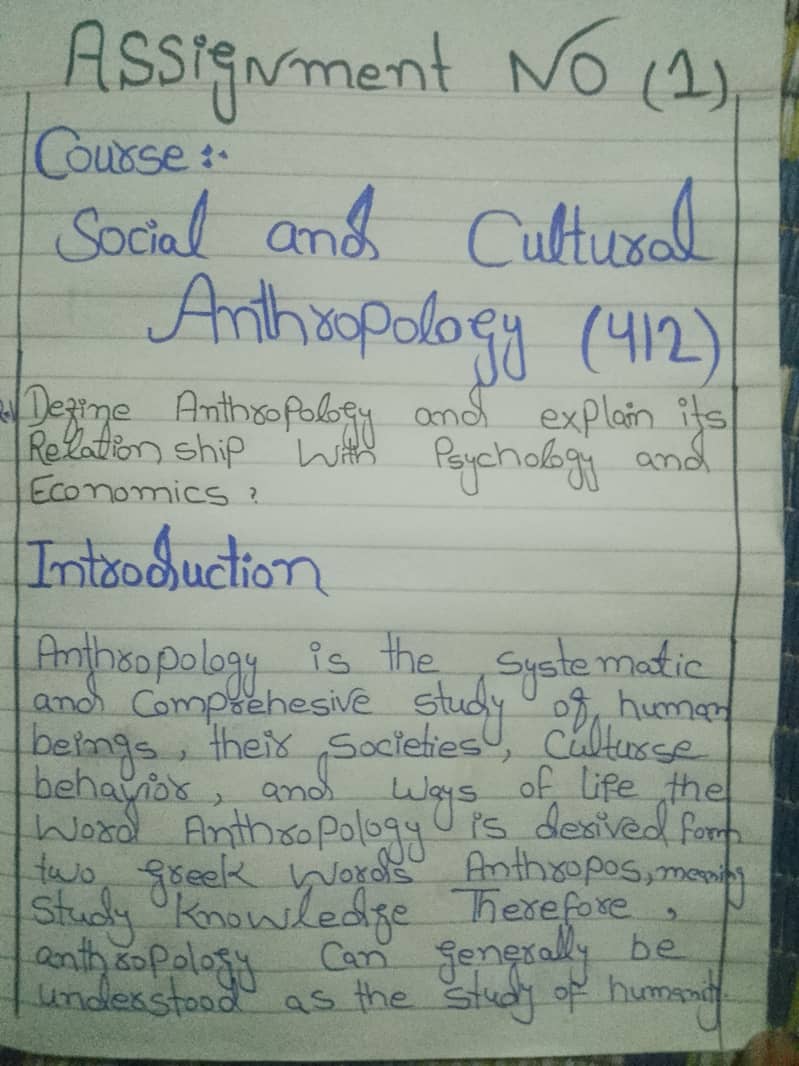 Assignment No (1)
Course :-
Social and Cultural
Anthropology (412)
Define Anthropology and explain its
Relation ship with Psychology and
Economics ?
Introduction
Anthropology is the systematic
and Comprehesive study of human
beings, their Societies, Culturse
behavior, and ways of life the
Word Anthropology is derived form
two greek words Anthropos, meaning
Study Knowledge Therefore ,
anthropology Can generally be
understood as the study of humanity.